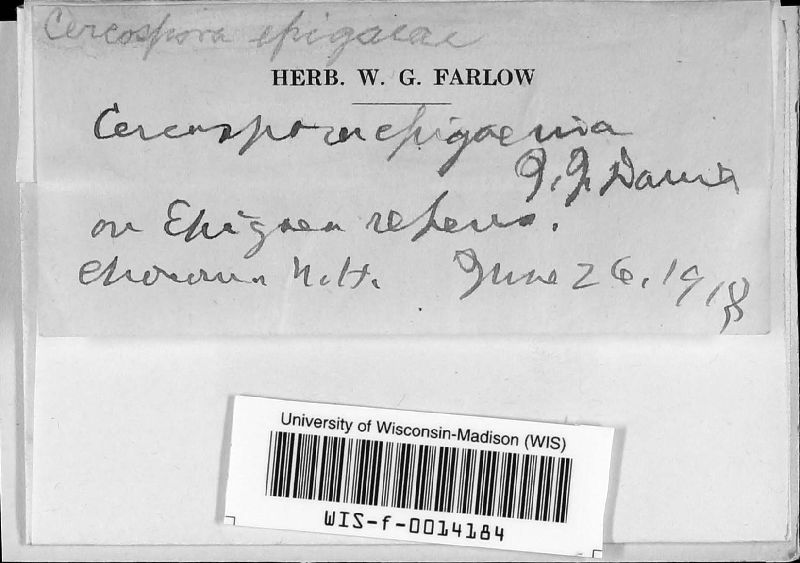 Cercospora epigaeae
HERB. W. G. FARLOW
Cercospora epigaeina
J. J. Davis
on Epigaea repens.
Chocorua N.H. June 26, 1918
University of Wisconsin-Madison (WIS)
WIS-f-0014184